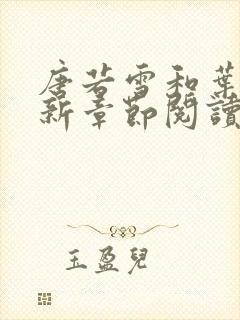 唐若雪和葉
新章節閱讀
玉盈兒